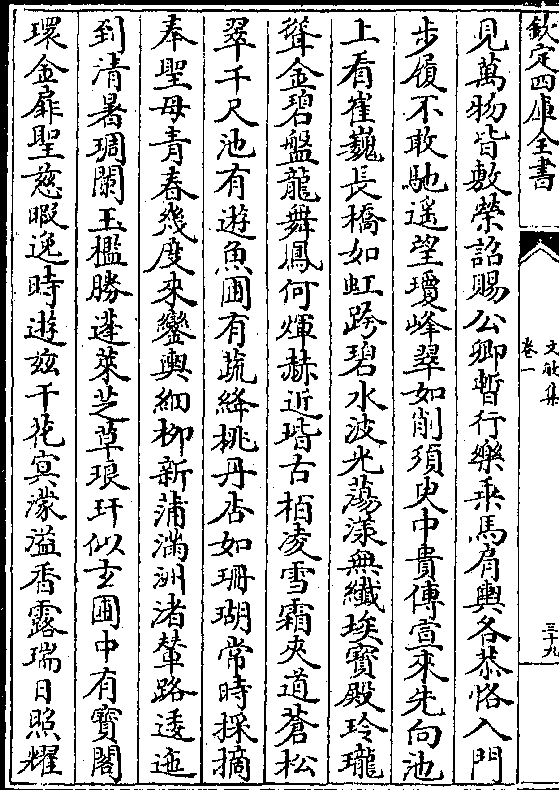 欽定四庫全書
文敏集
卷一
三十九
見萬物皆敷榮詔賜公卿暫行樂乘馬肩輿各恭恪入門
步履不敢馳遥望瓊峰翠如削須臾中貴傳宣來先向池
上看崔巍長橋如虹跨碧水波光蕩漾無纖埃寶殿玲瓏
聳金碧盤龍舞鳳何煇赫近堦古栢凌雪霜夾道蒼松
翠千尺池有遊魚圃有蔬絳桃丹杏如珊瑚常時採摘
奉聖母青春幾度來鑾輿細柳新蒲滿洲渚輦路逶迤
到清暑琱闌玉檻勝蓬萊芝草琅玕似玄圃中有寶閣
環金扉聖慈暇逸時遊玆千花㝠濛溢香露瑞日照耀